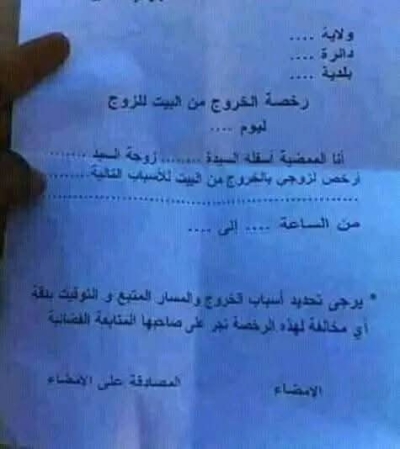 ولاية ....
دائرة ....
بلدية ....
رخصة الخروج من البيت للزوج
ليوم ....
أنا الممضية أسفله السيدة ........ زوجة السيد ........
أرخص لزوجي بالخروج من البيت للأسباب التالية.........
..............................................
من الساعة .... إلى ....
* يرجى تحديد أسباب الخروج والمسار المتبع و التوقيت بدقة
أي مخالفة لهذه الرخصة تجر على صاحبها المتابعة القضائية
الامضاء
المصادقة على الامضاء